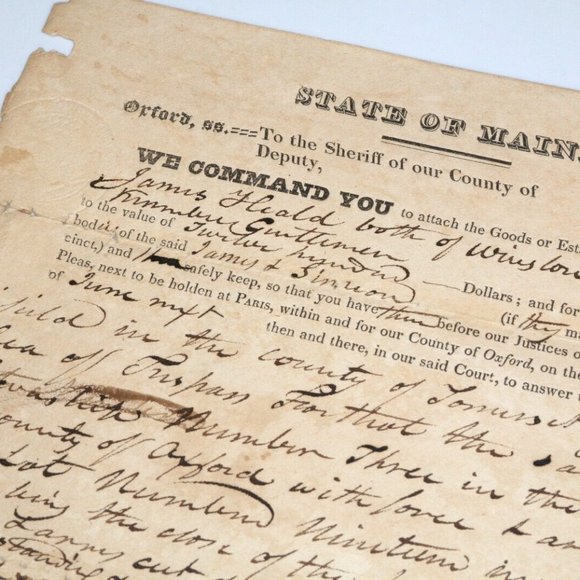 STATE OF MAIN
Oxford, ss.===To the Sheriff of our County of
Deputy,
WE COMMAND YOU to attach the Goods or Est
James Heald both of Winslow
Gentlemen
to the value of Twelve hundred Dollars; and for
bodies of the said James & Simeon (if they ma
cinct,) and safely keep, so that you have them before our Justices o
Pleas, next to be holden at PARIS, within and for our County of Oxford, on the
of June next then and there, in our said Court, to answer
field in the county of Somerset
lea of Trespass For that the sa
Number Three in the
ounty of Oxford with force & ar
Lot Numbered Nineteen in
the close of the
cut d